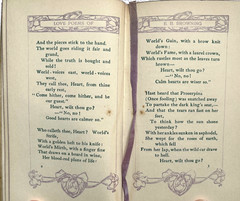 LOVE POEMS OF
And the pierce stick to the hand.
The world goes riding it fair and grand,
While the truth is bought and sold!
World-voices east, world-voices west,
They call thee, Heart, from thine early rest,
"Come hither, come hither, and be our guest."
Heart, wilt thou go?
—"No, no!
Good hearts are calmer so."
Who calleth thee, Heart? World's Strife,
With a golden heft to his knife:
World's Mirth, with a finger fine
That draws on a board in wine,
Her blood-red plans of life:
E. B. BROWNING
World's Gain, with a brow knit down:
World's Fame, with a laurel crown,
Which rustles most as the leaves turn brown—
Heart, wilt thou go?
—"No, no!
Calm hearts are wiser so."
Hast heard that Proserpina
(Once fooling) was snatched away
To partake the dark king's seat,—
And that the tears ran fast on her feet,
To think how the sun shone yesterday?
With her ankles sunken in asphodel,
She wept for the roses of earth, which fell
From her lap, when the wild car drave to hell.
Heart, wilt thou go?